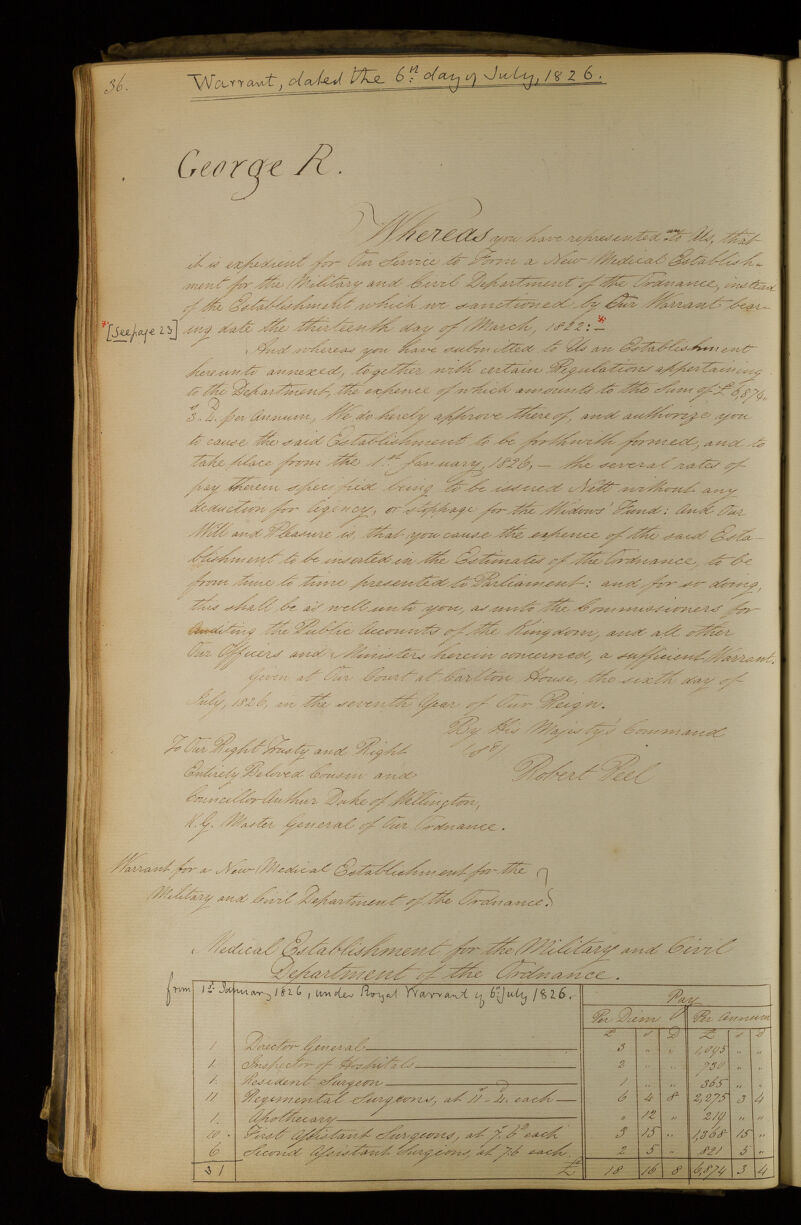 36.
Warrant, dated the 6th day of July, 1826.
George R.
Whereas you have represented unto Us, that
it is expedient for Our Service to Form a New Medical Establish-
ment for the Military and Civil Department of the Ordnance, instead
of the Establishment which we sanctioned by Our Warrant bear-
*[See page 23] ing date the thirteenth day of March, 1822:* —
And whereas you have submitted to Us an Establishment
hereunto annexed, together with certain Regulations appertaining
to the Department, the expence of which amounts to the Sum of £6,874.
3s. 4d. per Annum, We do hereby approve thereof, and authorize you
to cause the said Establishment to be forthwith formed, and to
take place from the 1st January, 1826, — the several rates of
pay therein specified being to be issued Nett without any
deduction for Agency, or stoppage for the Widows' Fund: And Our
Will and Pleasure is, that you cause the expence of the said Esta-
blishment to be inserted in the Estimates of the Ordnance, to be
from time to time presented to Parliament: and for so doing,
this shall be as well unto you, as unto the Commissioners for
Auditing the Public Accounts of the Kingdom, and all other
Our Officers and Ministers herein concerned, a sufficient Warrant.
Given at Our Court at Carlton House, the sixth day of
July, 1826, in the seventh Year of Our Reign.
By His Majesty's Command
To Our Right Trusty and Right
Entirely Beloved Cousin and Robert Peel
Councillor Arthur Duke of Wellington,
K.G. Master General of Our Ordnance.
Warrant for a New Medical Establishment for the
Military and Civil Department of the Ordnance.
Medical Establishment for the Military and Civil
Department of the Ordnance.
from 1st January 1826, under Royal Warrant of 6th July 1826.
Pay
Per Diem Per Annum
£ s D £ s d
1 Director General 3 " " 1,095 " "
1. Inspector of Hospitals 2 " " 730 " "
1. Resident Surgeon 1 " " 365 " "
11 Regimental Surgeons, at 11s. 4d. each 6 4 8 2,275 3 4
1. Apothecary " 12 " 219 " "
10. First Assistant Surgeons, at 7.6 each 3 15 " 1,368 15 "
6 Second Assistant Surgeons, at 7.6 each 2 5 " 821 5 "
31 £ 18 16 8 6,874 3 4